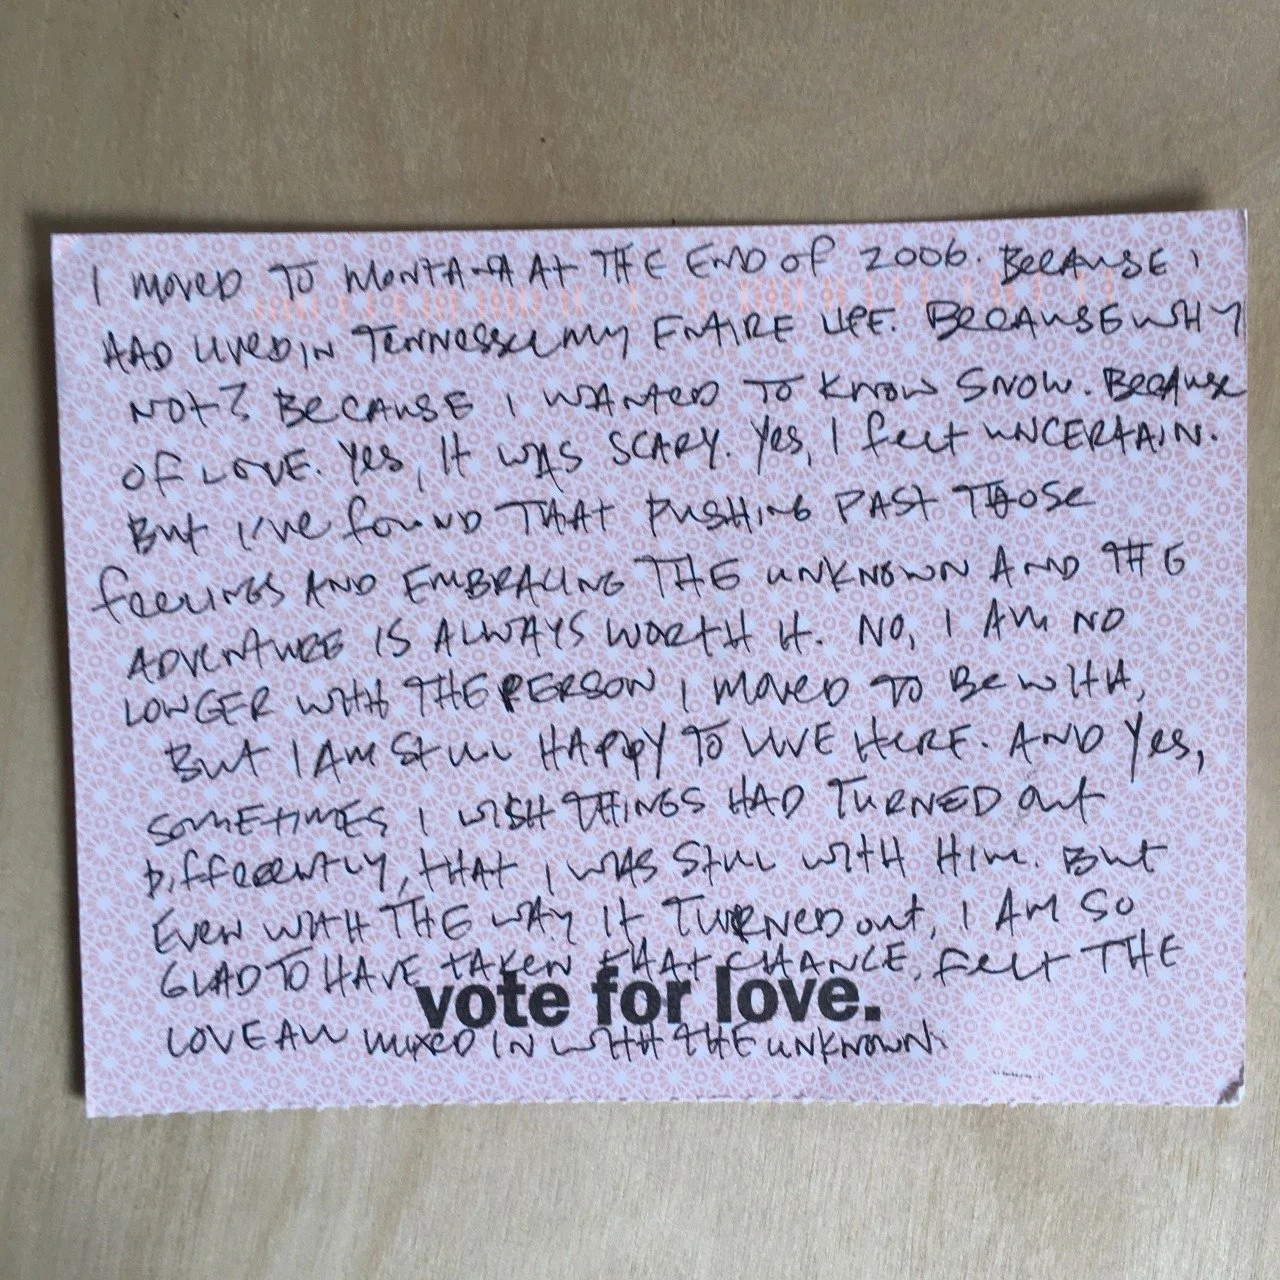 I MOVED TO MONTANA AT THE END OF 2006. BECAUSE I
HAD LIVED IN TENNESSEE MY ENTIRE LIFE. BECAUSE WHY
NOT? BECAUSE I WANTED TO KNOW SNOW. BECAUSE
OF LOVE. YES, IT WAS SCARY. YES, I FELT UNCERTAIN.
BUT I'VE FOUND THAT PUSHING PAST THOSE
FEELINGS AND EMBRACING THE UNKNOWN AND THE
ADVENTURE IS ALWAYS WORTH IT. NO, I AM NO
LONGER WITH THE PERSON I MOVED TO BE WITH,
BUT I AM STILL HAPPY TO LIVE HERE. AND YES,
SOMETIMES I WISH THINGS HAD TURNED OUT
DIFFERENTLY, THAT I WAS STILL WITH HIM. BUT
EVEN WITH THE WAY IT TURNED OUT, I AM SO
GLAD TO HAVE TAKEN THAT CHANCE, FELT THE
vote for love.
LOVE ALL MIXED IN WITH THE UNKNOWN.